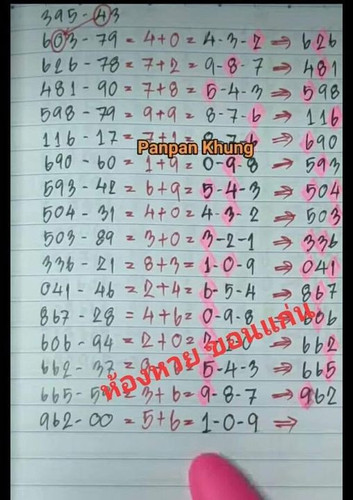 395-43
603-79 = 4+0 = 4-3-2 ⇒ 626
626-78 = 7+2 = 9-8-7 ⇒ 481
481-90 = 7+8 = 5-4-3 ⇒ 598
598-79 = 9+9 = 8-7-6 ⇒ 116
116-17 = 7+1 = 8-7-6 ⇒ 690
Panpan Khung
690-60 = 1+9 = 0-9-8 ⇒ 593
593-42 = 6+9 = 5-4-3 ⇒ 504
504-31 = 4+0 = 4-3-2 ⇒ 503
503-89 = 3+0 = 3-2-1 ⇒ 336
336-21 = 8+3 = 1-0-9 ⇒ 041
041-46 = 2+4 = 6-5-4 ⇒ 867
867-28 = 4+6 = 0-9-8 ⇒ 606
606-94 = 2+0 = ⇒ 662
ห้องหวย ขอนแก่น
662-37 = 5-4-3 ⇒ 665
= 3+6 = 9-8-7 ⇒ 962
962-00 = 5+6 = 1-0-9 ⇒